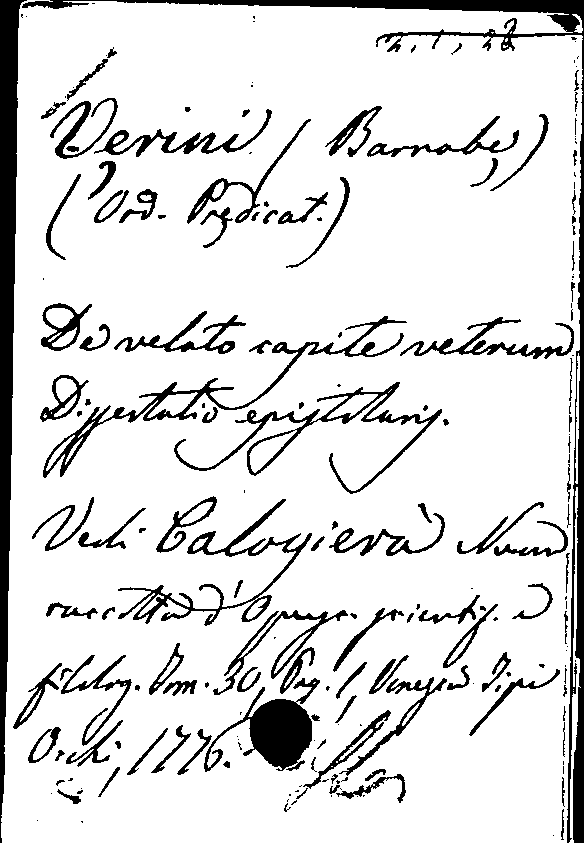 2.1,28
Verini (Barnaba)
(Ord. Predicat.)
De velato capite veterum
Dissertatio epistolaris.
Vedi Calogierà Nuova
raccolta d'Opusc. scientif. e
filolog. Tom. 30, Pag. 1, Venezia Tipi
Occhi, 1776.